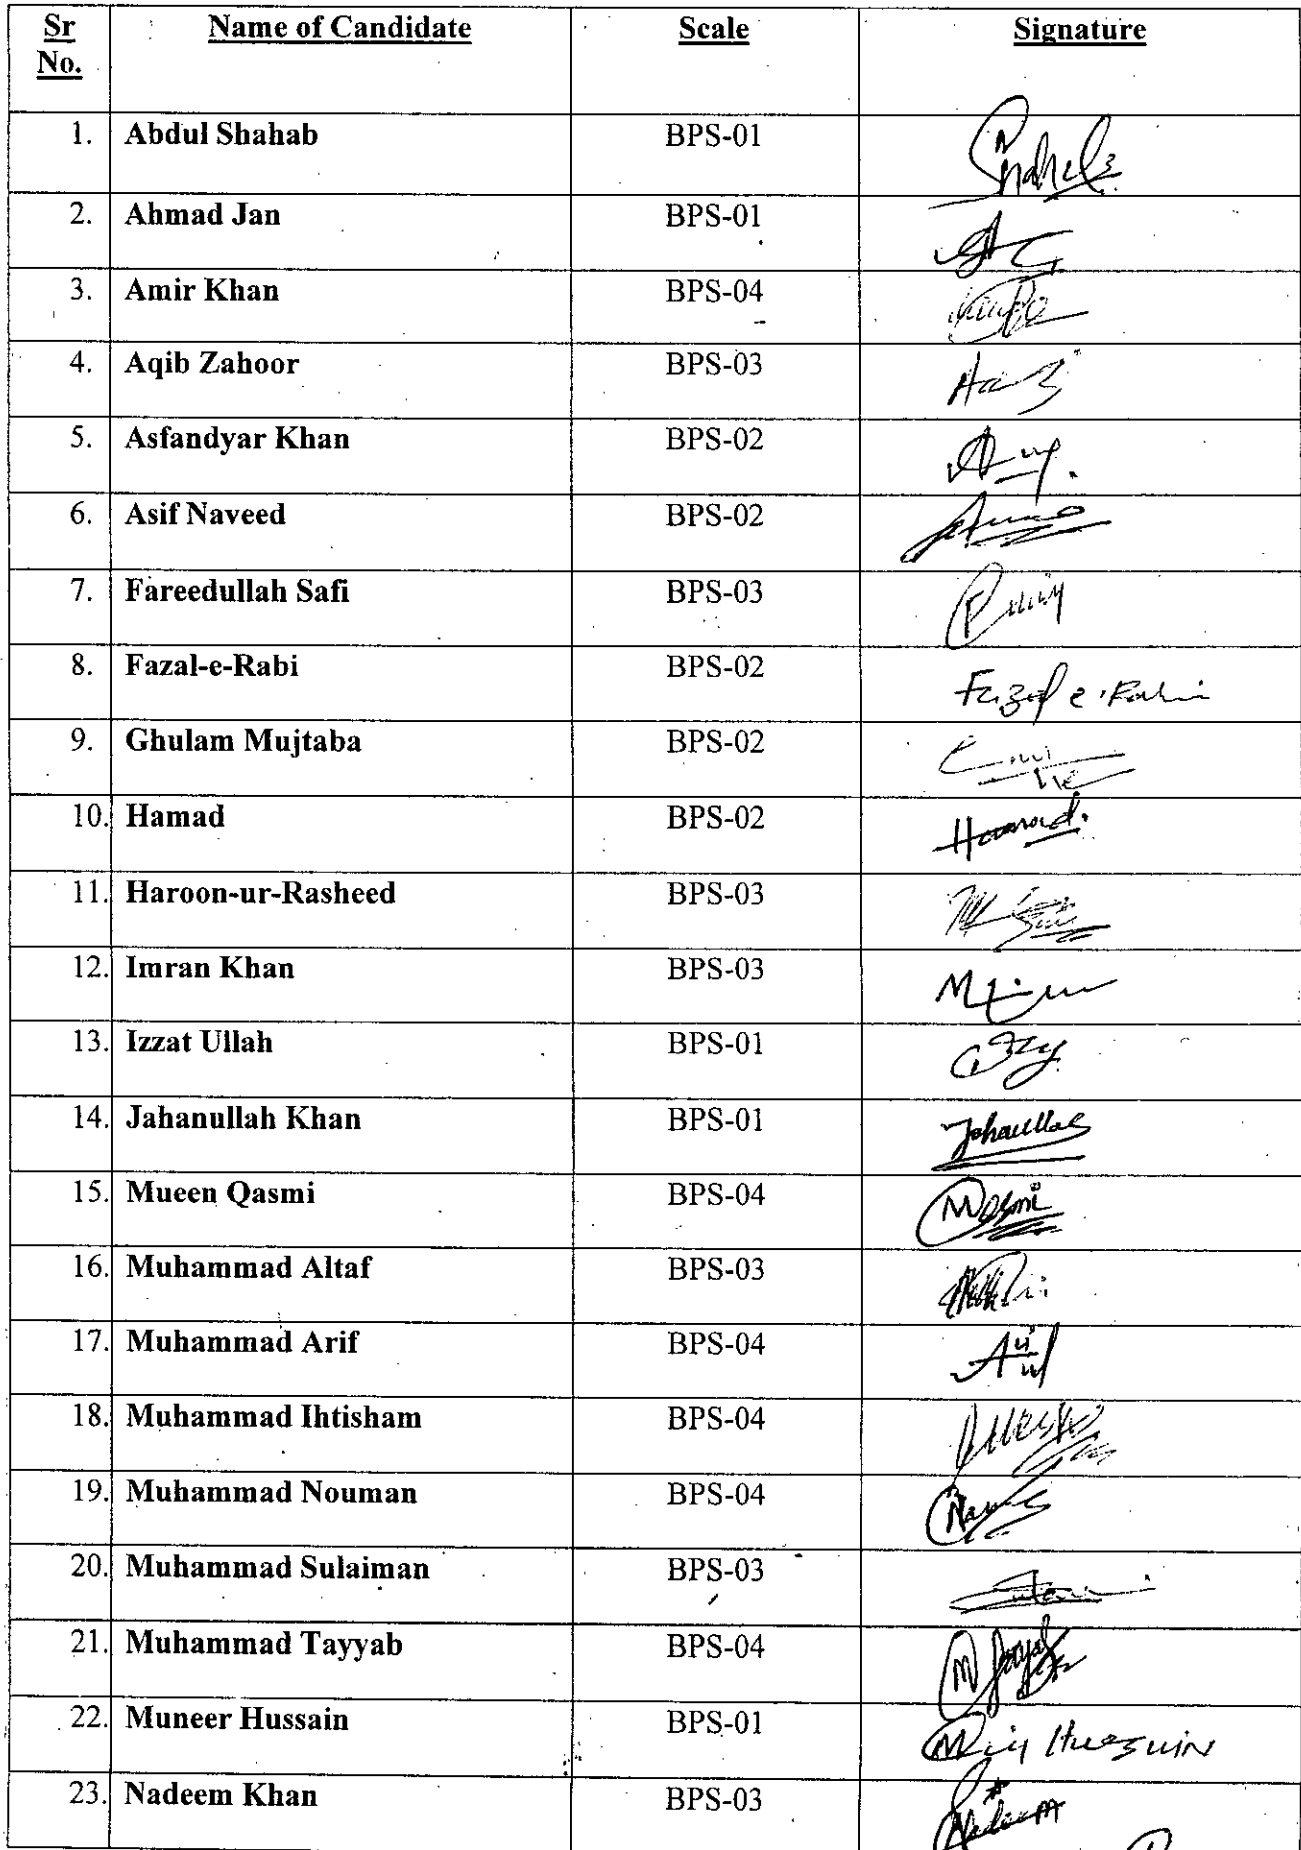 Sr No. Name of Candidate Scale Signature
1. Abdul Shahab BPS-01 Shahab
2. Ahmad Jan BPS-01
3. Amir Khan BPS-04
4. Aqib Zahoor BPS-03
5. Asfandyar Khan BPS-02
6. Asif Naveed BPS-02
7. Fareedullah Safi BPS-03
8. Fazal-e-Rabi BPS-02 Fazal e Rabi
9. Ghulam Mujtaba BPS-02
10. Hamad BPS-02 Hammad.
11. Haroon-ur-Rasheed BPS-03
12. Imran Khan BPS-03
13. Izzat Ullah BPS-01
14. Jahanullah Khan BPS-01 Jahanullah
15. Mueen Qasmi BPS-04 MQasmi
16. Muhammad Altaf BPS-03
17. Muhammad Arif BPS-04
18. Muhammad Ihtisham BPS-04
19. Muhammad Nouman BPS-04
20. Muhammad Sulaiman BPS-03
21. Muhammad Tayyab BPS-04
22. Muneer Hussain BPS-01 Hussain
23. Nadeem Khan BPS-03 Nadeem